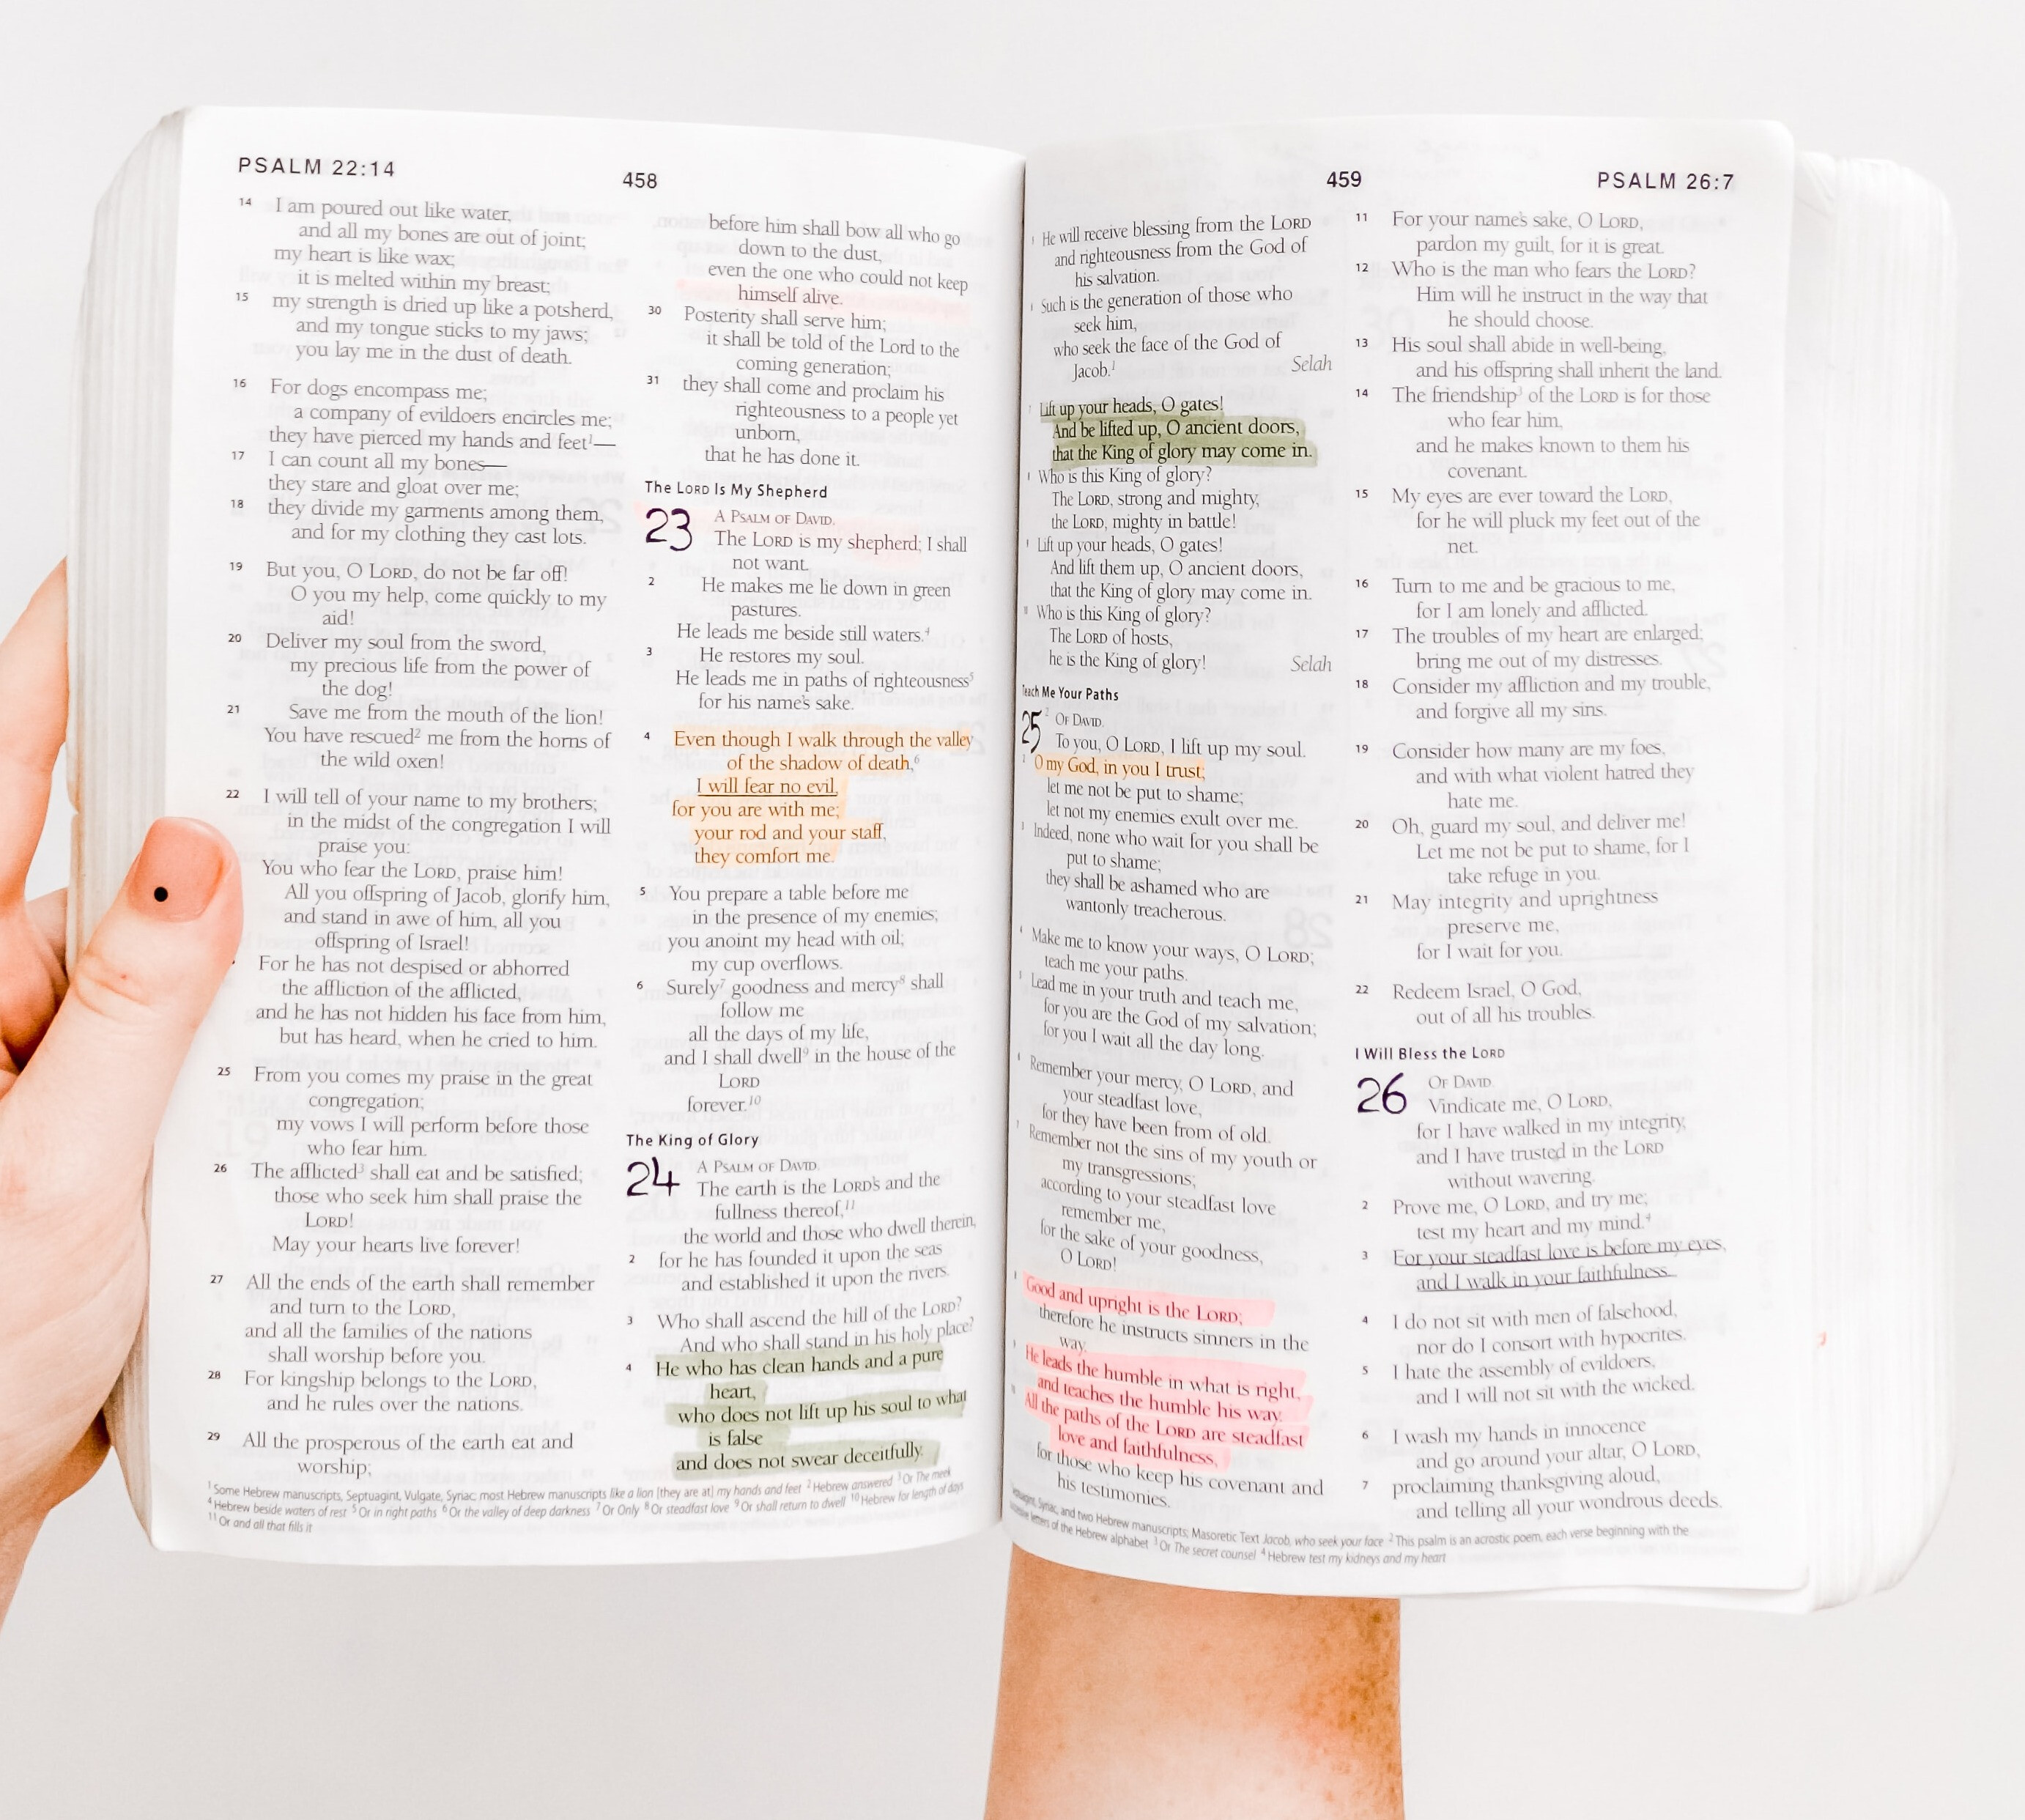 PSALM 22:14
458
14 I am poured out like water,
and all my bones are out of joint;
my heart is like wax;
it is melted within my breast;
15 my strength is dried up like a potsherd,
and my tongue sticks to my jaws;
you lay me in the dust of death.
16 For dogs encompass me;
a company of evildoers encircles me;
they have pierced my hands and feet1—
17 I can count all my bones—
they stare and gloat over me;
18 they divide my garments among them,
and for my clothing they cast lots.
19 But you, O LORD, do not be far off!
O you my help, come quickly to my
aid!
20 Deliver my soul from the sword,
my precious life from the power of
the dog!
21 Save me from the mouth of the lion!
You have rescued2 me from the horns of
the wild oxen!
22 I will tell of your name to my brothers;
in the midst of the congregation I will
praise you:
You who fear the LORD, praise him!
All you offspring of Jacob, glorify him,
and stand in awe of him, all you
offspring of Israel!
For he has not despised or abhorred
the affliction of the afflicted,
and he has not hidden his face from him,
but has heard, when he cried to him.
25 From you comes my praise in the great
congregation;
my vows I will perform before those
who fear him.
26 The afflicted3 shall eat and be satisfied;
those who seek him shall praise the
LORD!
May your hearts live forever!
27 All the ends of the earth shall remember
and turn to the LORD,
and all the families of the nations
shall worship before you.
28 For kingship belongs to the LORD,
and he rules over the nations.
29 All the prosperous of the earth eat and
worship;
before him shall bow all who go
down to the dust,
even the one who could not keep
himself alive.
30 Posterity shall serve him;
it shall be told of the Lord to the
coming generation;
31 they shall come and proclaim his
righteousness to a people yet
unborn,
that he has done it.
The LORD Is My Shepherd
23 A PSALM OF DAVID.
The LORD is my shepherd; I shall
not want.
2 He makes me lie down in green
pastures.
He leads me beside still waters.4
3 He restores my soul.
He leads me in paths of righteousness5
for his name's sake.
4 Even though I walk through the valley
of the shadow of death,6
I will fear no evil,
for you are with me;
your rod and your staff,
they comfort me.
5 You prepare a table before me
in the presence of my enemies;
you anoint my head with oil;
my cup overflows.
6 Surely7 goodness and mercy8 shall
follow me
all the days of my life,
and I shall dwell9 in the house of the
LORD
forever.10
The King of Glory
24 A PSALM OF DAVID.
The earth is the LORD's and the
fullness thereof,11
the world and those who dwell therein,
2 for he has founded it upon the seas
and established it upon the rivers.
3 Who shall ascend the hill of the LORD?
And who shall stand in his holy place?
4 He who has clean hands and a pure
heart,
who does not lift up his soul to what
is false
and does not swear deceitfully.
1 Some Hebrew manuscripts, Septuagint, Vulgate, Syriac; most Hebrew manuscripts like a lion [they are at] my hands and feet 2 Hebrew answered 3 Or The meek
4 Hebrew beside waters of rest 5 Or in right paths 6 Or the valley of deep darkness 7 Or Only 8 Or steadfast love 9 Or shall return to dwell 10 Hebrew for length of days
11 Or and all that fills it
459
PSALM 26:7
He will receive blessing from the LORD
and righteousness from the God of
his salvation.
Such is the generation of those who
seek him,
who seek the face of the God of
Jacob.1 Selah
Lift up your heads, O gates!
And be lifted up, O ancient doors,
that the King of glory may come in.
Who is this King of glory?
The LORD, strong and mighty,
the LORD, mighty in battle!
Lift up your heads, O gates!
And lift them up, O ancient doors,
that the King of glory may come in.
Who is this King of glory?
The LORD of hosts,
he is the King of glory! Selah
Teach Me Your Paths
25 2 OF DAVID.
To you, O LORD, I lift up my soul.
O my God, in you I trust;
let me not be put to shame;
let not my enemies exult over me.
Indeed, none who wait for you shall be
put to shame;
they shall be ashamed who are
wantonly treacherous.
Make me to know your ways, O LORD;
teach me your paths.
Lead me in your truth and teach me,
for you are the God of my salvation;
for you I wait all the day long.
Remember your mercy, O LORD, and
your steadfast love,
for they have been from of old.
Remember not the sins of my youth or
my transgressions;
according to your steadfast love
remember me,
for the sake of your goodness,
O LORD!
Good and upright is the LORD;
therefore he instructs sinners in the
way.
He leads the humble in what is right,
and teaches the humble his way.
All the paths of the LORD are steadfast
love and faithfulness,
for those who keep his covenant and
his testimonies.
11 For your name's sake, O LORD,
pardon my guilt, for it is great.
12 Who is the man who fears the LORD?
Him will he instruct in the way that
he should choose.
13 His soul shall abide in well-being,
and his offspring shall inherit the land.
14 The friendship3 of the LORD is for those
who fear him,
and he makes known to them his
covenant.
15 My eyes are ever toward the LORD,
for he will pluck my feet out of the
net.
16 Turn to me and be gracious to me,
for I am lonely and afflicted.
17 The troubles of my heart are enlarged;
bring me out of my distresses.
18 Consider my affliction and my trouble,
and forgive all my sins.
19 Consider how many are my foes,
and with what violent hatred they
hate me.
20 Oh, guard my soul, and deliver me!
Let me not be put to shame, for I
take refuge in you.
21 May integrity and uprightness
preserve me,
for I wait for you.
22 Redeem Israel, O God,
out of all his troubles.
I Will Bless the LORD
26 OF DAVID.
Vindicate me, O LORD,
for I have walked in my integrity,
and I have trusted in the LORD
without wavering.
2 Prove me, O LORD, and try me;
test my heart and my mind.4
3 For your steadfast love is before my eyes,
and I walk in your faithfulness.
4 I do not sit with men of falsehood,
nor do I consort with hypocrites.
5 I hate the assembly of evildoers,
and I will not sit with the wicked.
6 I wash my hands in innocence
and go around your altar, O LORD,
7 proclaiming thanksgiving aloud,
and telling all your wondrous deeds.
Syriac, and two Hebrew manuscripts; Masoretic Text Jacob, who seek your face 2 This psalm is an acrostic poem, each verse beginning with the
letters of the Hebrew alphabet 3 Or The secret counsel 4 Hebrew test my kidneys and my heart